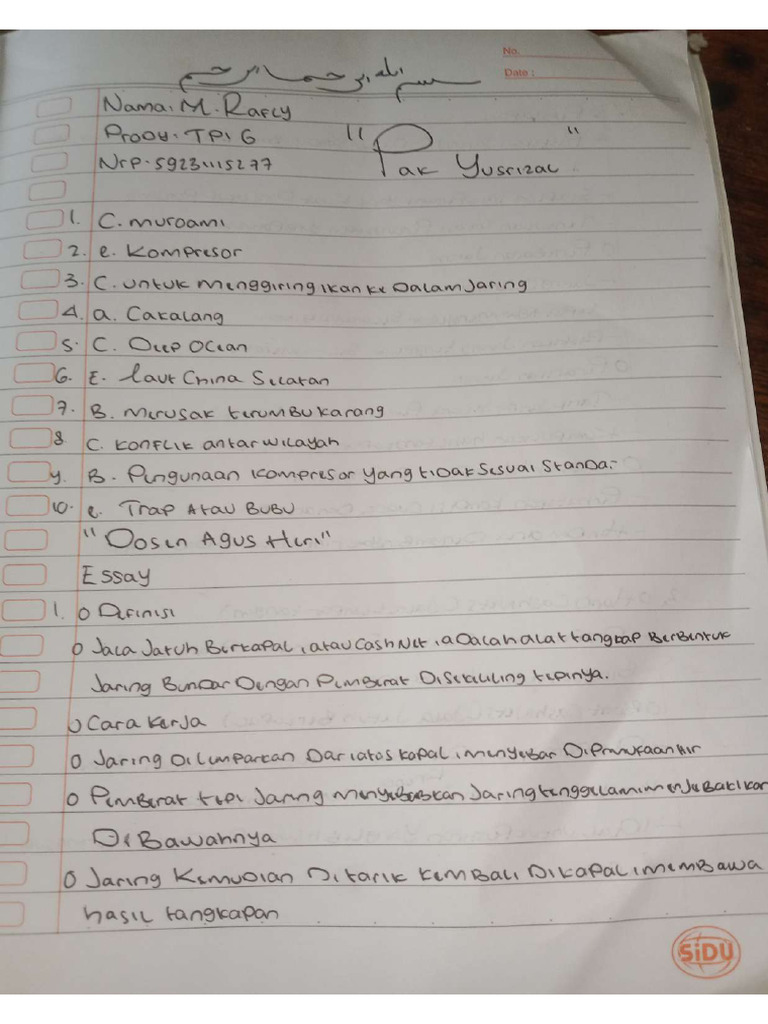 No.
Date :
بسم الله الرحمن الرحيم
Nama: M. Rafly
Prodi: TPI 6
" Pak Yusrizal "
Nrp. 59231115277
1. C. muroami
2. e. Kompresor
3. C. untuk menggiring ikan ke Dalam Jaring
4. a. Cakalang
5. C. Deep Ocean
6. E. laut China Selatan
7. B. Merusak terumbu karang
8. C. konflik antar wilayah
9. B. Pengunaan kompresor yang tidak sesuai Standar
10. e. Trap Atau BUBU
"Dosen Agus Heri"
Essay
1. o Definisi
o Jala Jatuh Berkapal, atau Cash Net, aDalah alat tangkap Berbentuk
Jaring Bundar Dengan Pemberat Disekeliling tepinya.
o Cara kerja
o Jaring Dilemparkan Dari atas kapal, menyebar Dipermukaan Air
o Pemberat tepi Jaring menyebabkan Jaring tenggelam, menjebak ikan
Di Bawahnya
o Jaring Kemudian Ditarik kembali Dikapal, membawa
hasil tangkapan
SiDU